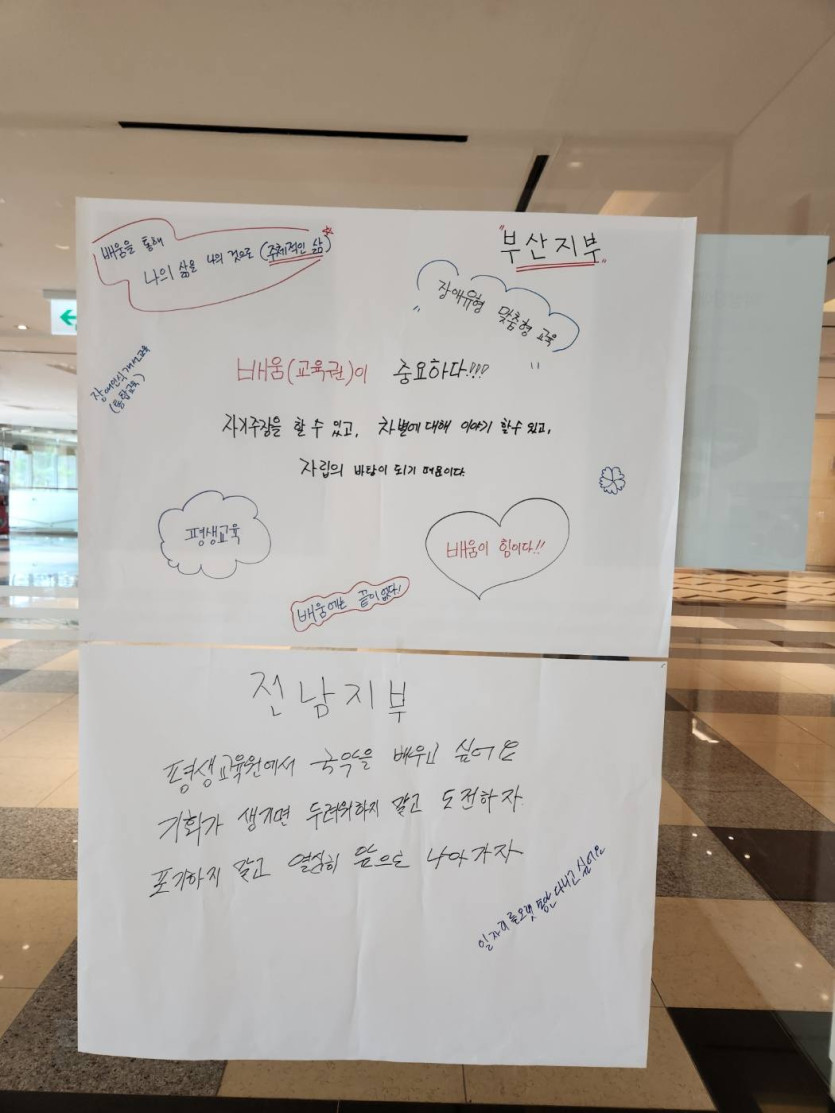 배움을 통해
나의 삶을 나의 것으로 (주체적인 삶)
"부산지부"
"장애유형 맞춤형 교육"
장애인식개선교육
(통합교육)
배움(교육권)이 중요하다!!!
자기주장을 할 수 있고, 차별에 대해 이야기 할 수 있고,
자립의 바탕이 되기 때문이다.
평생교육
배움이 힘이다!!
배움에는 끝이 없다!
전남지부
평생교육원에서 국악을 배우고 싶어요
기회가 생기면 두려워하지 말고 도전하자
포기하지 말고 열심히 앞으로 나아가자
일자리를 오랫 다니고 싶어요